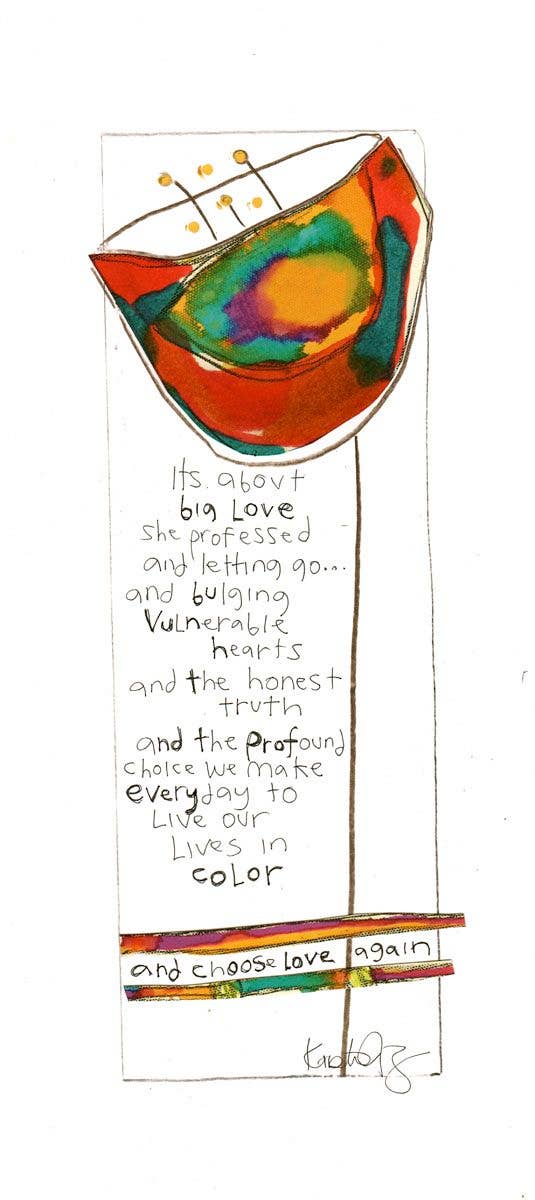 Its about
big Love
she professed
and letting go...
and bulging
Vulnerable
hearts
and the honest
truth
and the Profound
choice we make
everyday to
Live our
Lives in
coLor
and chooSe Love again